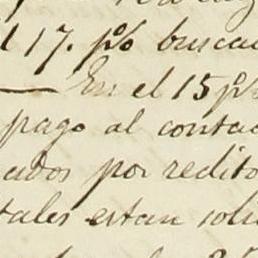 117. p% busca
— En el 15 p%
pago al contac
cados por redito
tales estan soli